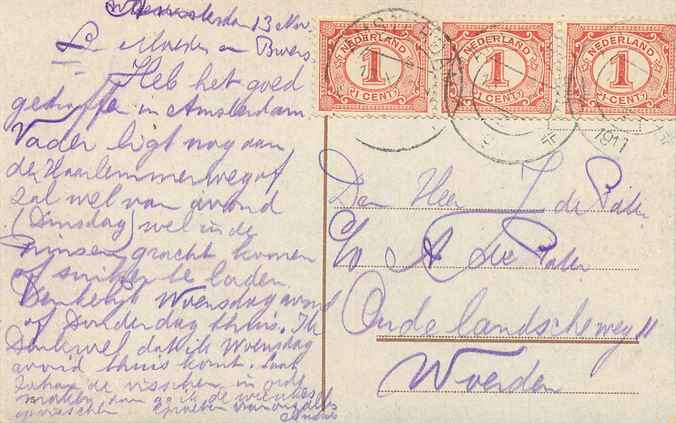 Amsterdam 13 Nov
L. Moeder en Broers
Heb het goed
getroffen in Amsterdam
Vader ligt nog aan
de Haarlemmerweg of
zal wel van avond
(Dinsdag) wel in de
Prinsengracht komen
of suiker te laden
Denkelijk Woensdag avond
of Donderdag thuis. Ik
Denk wel dat ik Woensdag
avond thuis komt. Laat
Johan de visschen in orde
maken dan ga ik de
visschen Groeten van
NEDERLAND
1
1 CENT
NEDERLAND
1
1 CENT
NEDERLAND
1
1 CENT
1917
Den Heer J de Pater
C/o A de Pater
Oudelandscheweg 11
Woerden